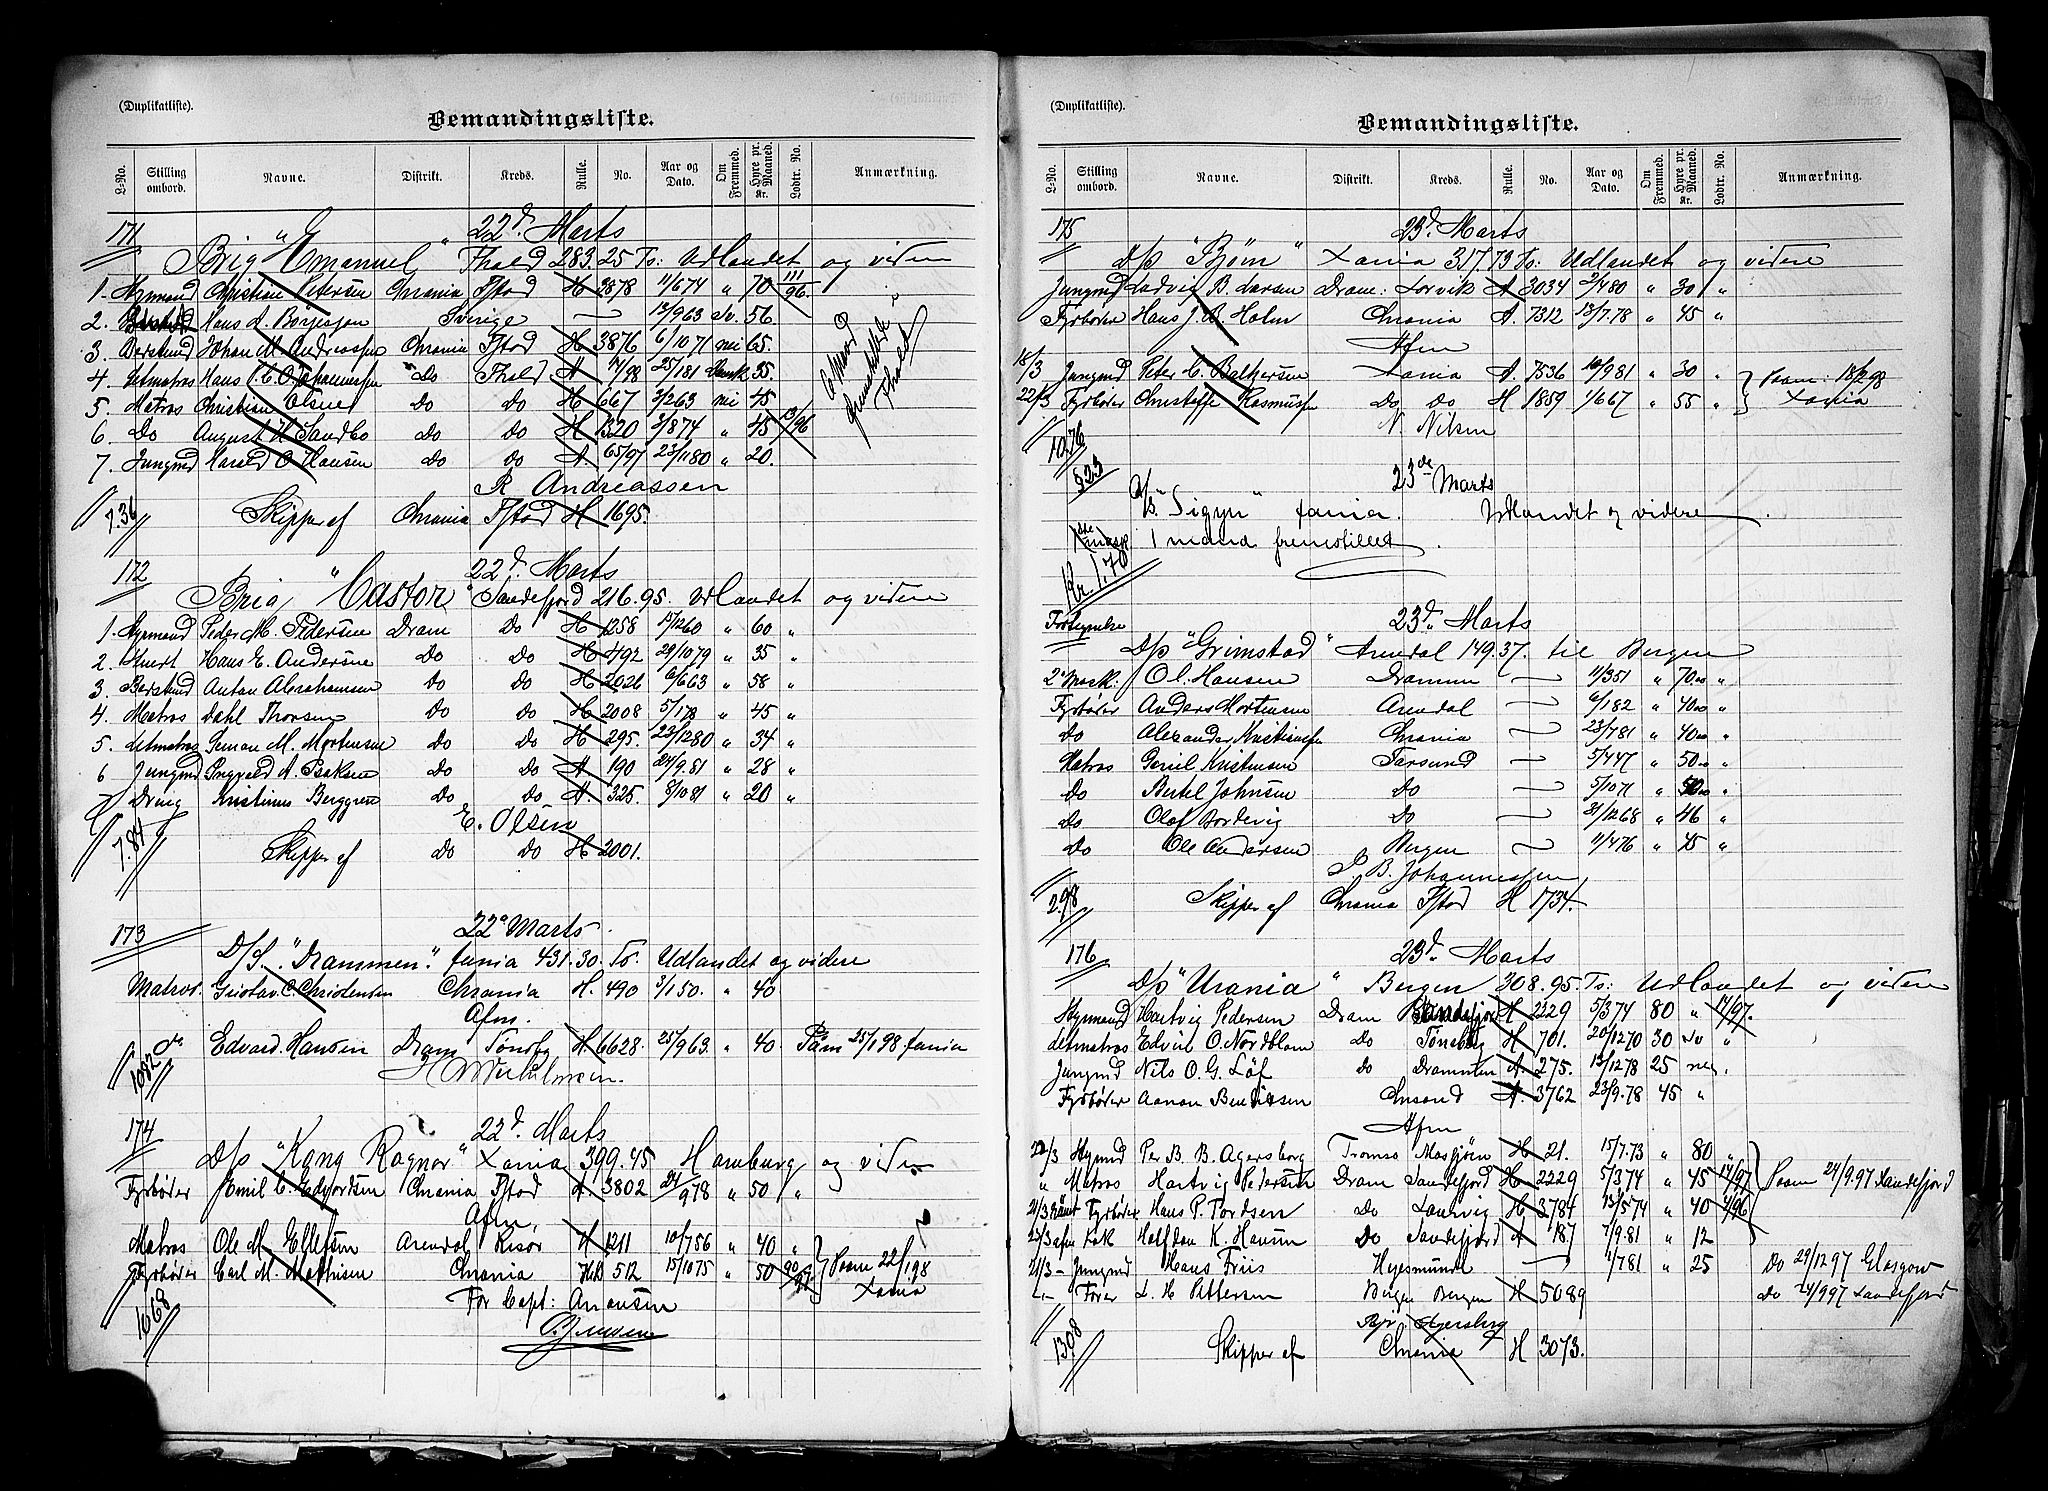 (Duplikatliste).
Bemandingsliste.
L-No. Stilling ombord. Navne. Distrikt. Kreds. Rulle. No. Aar og Dato. Om Fremmed. Hyre pr. Maaned. Kr. Lodtr. No. Anmærkning.
171 22d. Marts
Brig "Emanuel" Fhald 283.25 Ts: Udlandet og videre
1. Styrmand Christian Petersen Chrania Fstad H 2878 11/674 " 70 111/96
2. Hans A. Börjesson Sverige — 17/963 Sv. 56
3. Baadsmd Johan M. Andreassen Chrania Fstad H 3876 6/1071 nei 65.
4. Letmatros Hans C. O. Johannessen Do Fhald A 7/98 25/181 35
5. Matros Christian Olsen Do Do H 667 3/263 nei 45
6. Do August H. Sandbo Do Do H 1320 3/874 " 45 13/96
7. Jungmd Harald O. Hansen Do Do A. 65/97 23/1180 " 20.
6 Mand fremstillede i Fhald
R. Andreassen
7.36 Skipper af Chrania Fstad H 1695.
172 22d. Marts
Brig "Castor" Sandefjord 216.95. Udlandet og videre
1. Styrmand Peder M. Pedersen Dram Do H 1258 17/1260 " 60 "
2. Stuert Hans E. Andersen Do Do H 492 29/1079 " 35 "
3. Baadsmd Anton Abrahamsen Do Do H 2026 6/663 " 58 "
4. Matros Dahl Thorsen Do Do H 2008 5/178 " 45 "
5. Letmatros Simon M. Mortensen Do Do H 295. 23/1280 " 34 "
6 Jungmd Ingvald A. Isaksen Do Do A 190 24/9.81 " 28 "
7 Dreng Kristinus Berggren Do Do A. 325. 8/1081 " 20 "
E. Olsen
7.84 Skipper af Do Do H 2001.
173 22d Marts
D/S. "Drammen." Xania 431.30. Ts. Udlandet og videre
Matros. Gustav C. Christensen Chrania H. 490 3/150. " 40
Afm.
do Edvard Hansen Dram Tønsbg H. 6628. 25/963. " 40 Paam 25/198 Xania
1082 H Wilhelmsen.
174 22d. Marts
D/s "Kong Ragnar" Xania 399.45 Hamburg og videre
Fyrbøder Emil C. Edvardsen Chrania Fstad A. 3802 24/978 " 50 "
Afm.
Matros Ole M. Ellefsen Arendal Risør H 1211 10/756 " 40 "
Fyrbøder Carl M. Mathisen Chrania 512 15/1075 " 50 90/97 } Paam 22/198 Xania
For Capt: Anonsen
1068

(Duplikatliste).
Bemandingsliste.
L-No. Stilling ombord. Navne. Distrikt. Kreds. Rulle. No. Aar og Dato. Om Fremmed. Hyre pr. Maaned. Kr. Lodtr. No. Anmærkning.
175 23d. Marts
D/s "Bjørn" Xania 317.73 Ts: Udlandet og videre
Jungmd Ludvig B. Larsen Dram: Larvik A 3034 2/480 " 30 "
Fyrbøder Hans J. B. Holm Chrania A. 7312 13/7.78 " 45 "
Afm
18/3 Jungmd Peter C. Baltzersen Xania A. 7536 10/981 " 30 "
22/3 Fyrbøder Christoffer Rasmussen Do Do H 1859 1/667 " 55 " } Paam: 18/298 Xania
N. Nilsen
1076
§23 23de Marts
D/S "Sigyn" Xania. Udlandet og videre.
1 mand fremstillet.
Kr. 1.70
23d. Marts
D/s "Grimstad" Arendal 149.37. til Bergen
2 Mask: Ol. Hansen Drammen — 11/351 " 70.00 "
Fyrbøder Anders Mortensen Arendal — 6/182 " 40.00 "
Do Alexander Kristiansen Chrania — 23/781 " 40.00 "
Matros Kristensen Farsund — 5/447 " 50.00 "
Do Bertel Johnsen Do — 5/1071 " 50.00 "
Do Olaf Do — 31/1268 " 46 "
Do Ole Andersen Bergen — 11/476 " 45 "
S. B. Johannessen
2.98 Skipper af Chrania Fstad H 1734.
176 23d. Marts
D/s "Urania" Bergen 308.95. Ts: Udlandet og videre
Styrmand Hartvig Pedersen Dram Sandefjord H 2229 5/374 80 " 14/97.
Letmatros Edvin O. Nordblom Do Tønsbg H 701. 20/1270 30 Sv "
Jungmd Nils O. G. Löf Do Drammen A 275. 13/1278 25 nei.
Fyrbøder Aanon Bendixsen Chrsand A. 3762 23/9.78 45 "
Afm
20/3 Stymd Per B. B. Agersborg Tromsø Mosjøen H 21. 15/7.73 " 80 "
" Matros Hartvig Pedersen Dram Sandefjord H 2229 5/374 " 45 14/97 } Paam 24/9.97 Sandefjord
21/3 Fyrbøder Hans P. Tordsen Do Laurvig H 3784 13/574 " 40 4/96
23/3 afm Kok Halfdan K. Hansen Do Sandefjord A 187 7/9.81 " 12
21/3 – Jungmd Hans Friis — 1/781 " 25 Do 29/1297 Glasgow
Fører L. H. Pettersen Bergen Bergen H 5089 Do 24/997 Sandefjord
Agersborg
1308 Skipper af Chrania H 3073.